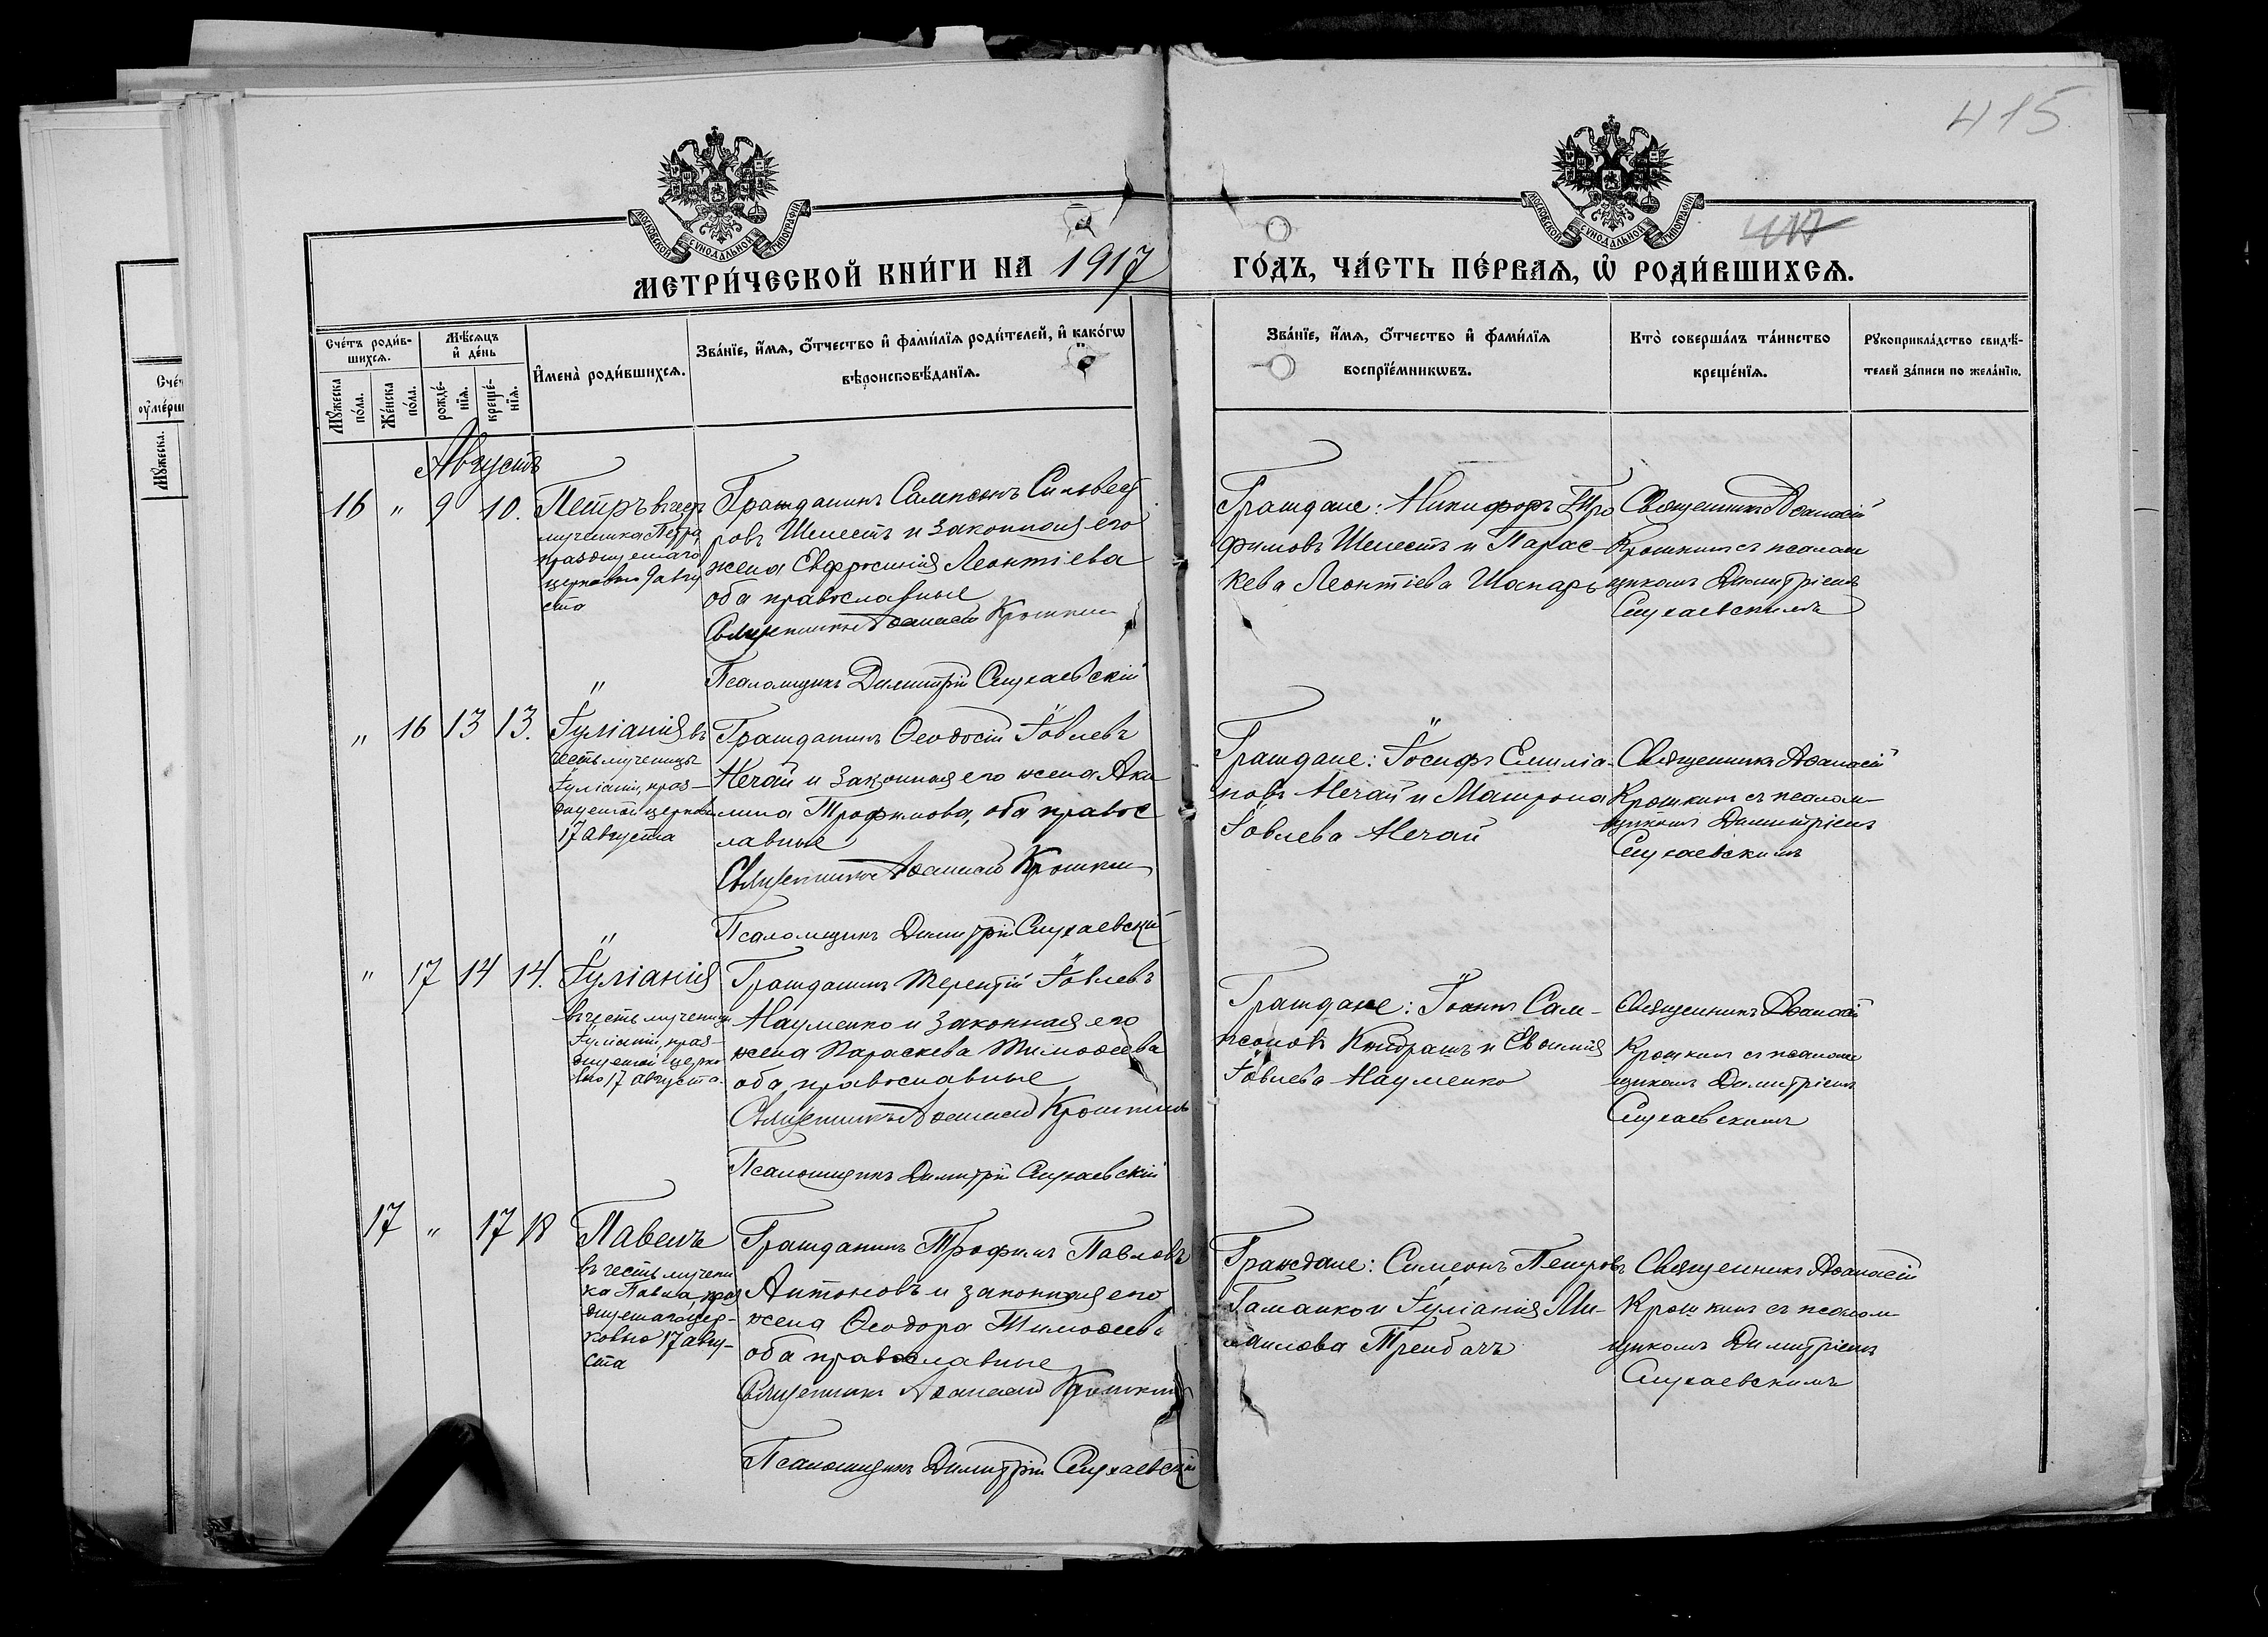 415
417
МОСКОВСКОЙ СУНОДАЛЬНОЙ ТИПОГРАФІИ
МОСКОВСКОЙ СУНОДАЛЬНОЙ ТИПОГРАФІИ
МЕТРИ́ЧЕСКОЙ КНИ́ГИ НА 1917
ГО́ДЪ, ЧА́СТЬ ПЕ́РВАѦ, Ѡ҆ РОДИ́ВШИХСѦ.
Сче́тъ роди́в-
шихсѧ.
Мѣ́сѧцъ
и҆ де́нь
Мꙋ́жеска
по́ла.
Же́нска
по́ла.
рожде́-
нїѧ.
креще́-
нїѧ.
И҆мена̀ роди́вшихсѧ.
Зва́нїе, и҆́мѧ, ѻ҆́тчество и҆ фами́лїѧ роди́телей, и҆ како́гѡ
вѣроисповѣ́данїѧ.
Зва́нїе, и҆́мѧ, ѻ҆́тчество и҆ фами́лїѧ
воспрїе́мникѡвъ.
Кто̀ соверша́лъ та́инство
креще́нїѧ.
Рꙋкоприкла́дство свидѣ́-
телей за́писи по жела́нїю.
Мꙋ́жеска.
Августъ
16 " 9 10.
Петръ въ чест
мученика Петра,
празднуемаго
церковью 9 авгу
ста
Гражданинъ Сампсонъ Сильвест
ровъ Шелестъ и законная его
жена Евфросинія Леонтіева
оба православные
Священникъ Аѳанасій Крошкин
Псаломщикъ Димитрій Слухаевскій
Граждане: Никифоръ Тро
фимовъ Шелестъ и Парас-
кева Леонтіева Шапарь
Священникъ Аѳанасій
Крошкинъ съ псалом
щикомъ Димитріемъ
Слухаевскимъ
" 16 13 13.
Іуліанія въ
честь мученицы
Іуліаніи, праз-
днуемой церковью
17 августа
Гражданинъ Ѳеодосій Іовлевъ
Нечай и законная его жена Аки
лина Трофимова, оба правос
лавные
Священникъ Аѳанасій Крошкин
Псаломщикъ Димитрій Слухаевскій
Граждане: Іосифъ Емиліа-
новъ Нечай и Матрона
Іовлева Нечай
Священникъ Аѳанасій
Крошкинъ съ псалом-
щикомъ Димитріемъ
Слухаевскимъ
" 17 14 14.
Іуліанія
въ честь мученицы
Іуліаніи, праз-
днуемой церко
вью 17 августа.
Гражданинъ Терентій Іовлевъ
Науменко и законная его
жена Параскева Тимоѳеева
оба православные
Священникъ Аѳанасій Крошкинъ
Псаломщикъ Димитрій Слухаевскій
Граждане: Іоаннъ Сам-
псоновъ Кондрашъ и Евѳимія
Іовлева Науменко
Священникъ Аѳанасій
Крошкинъ съ псалом
щикомъ Димитріемъ
Слухаевскимъ
17 " 17 18
Павелъ
въ честь мучени
ка Павла, праз
днуемаго цер-
ковью 17 авгу-
ста
Гражданинъ Трофимъ Павловъ
Антоновъ и законная его
жена Ѳеодора Тимоѳеева
оба православные
Священникъ Аѳанасій Крошкинъ
Псаломщикъ Димитрій Слухаевскій
Граждане: Симеонъ Петровъ
Гаманко и Іуліанія Ми-
хаилова Трембачъ
Священникъ Аѳанасій
Крошкинъ съ псалом
щикомъ Димитріемъ
Слухаевскимъ